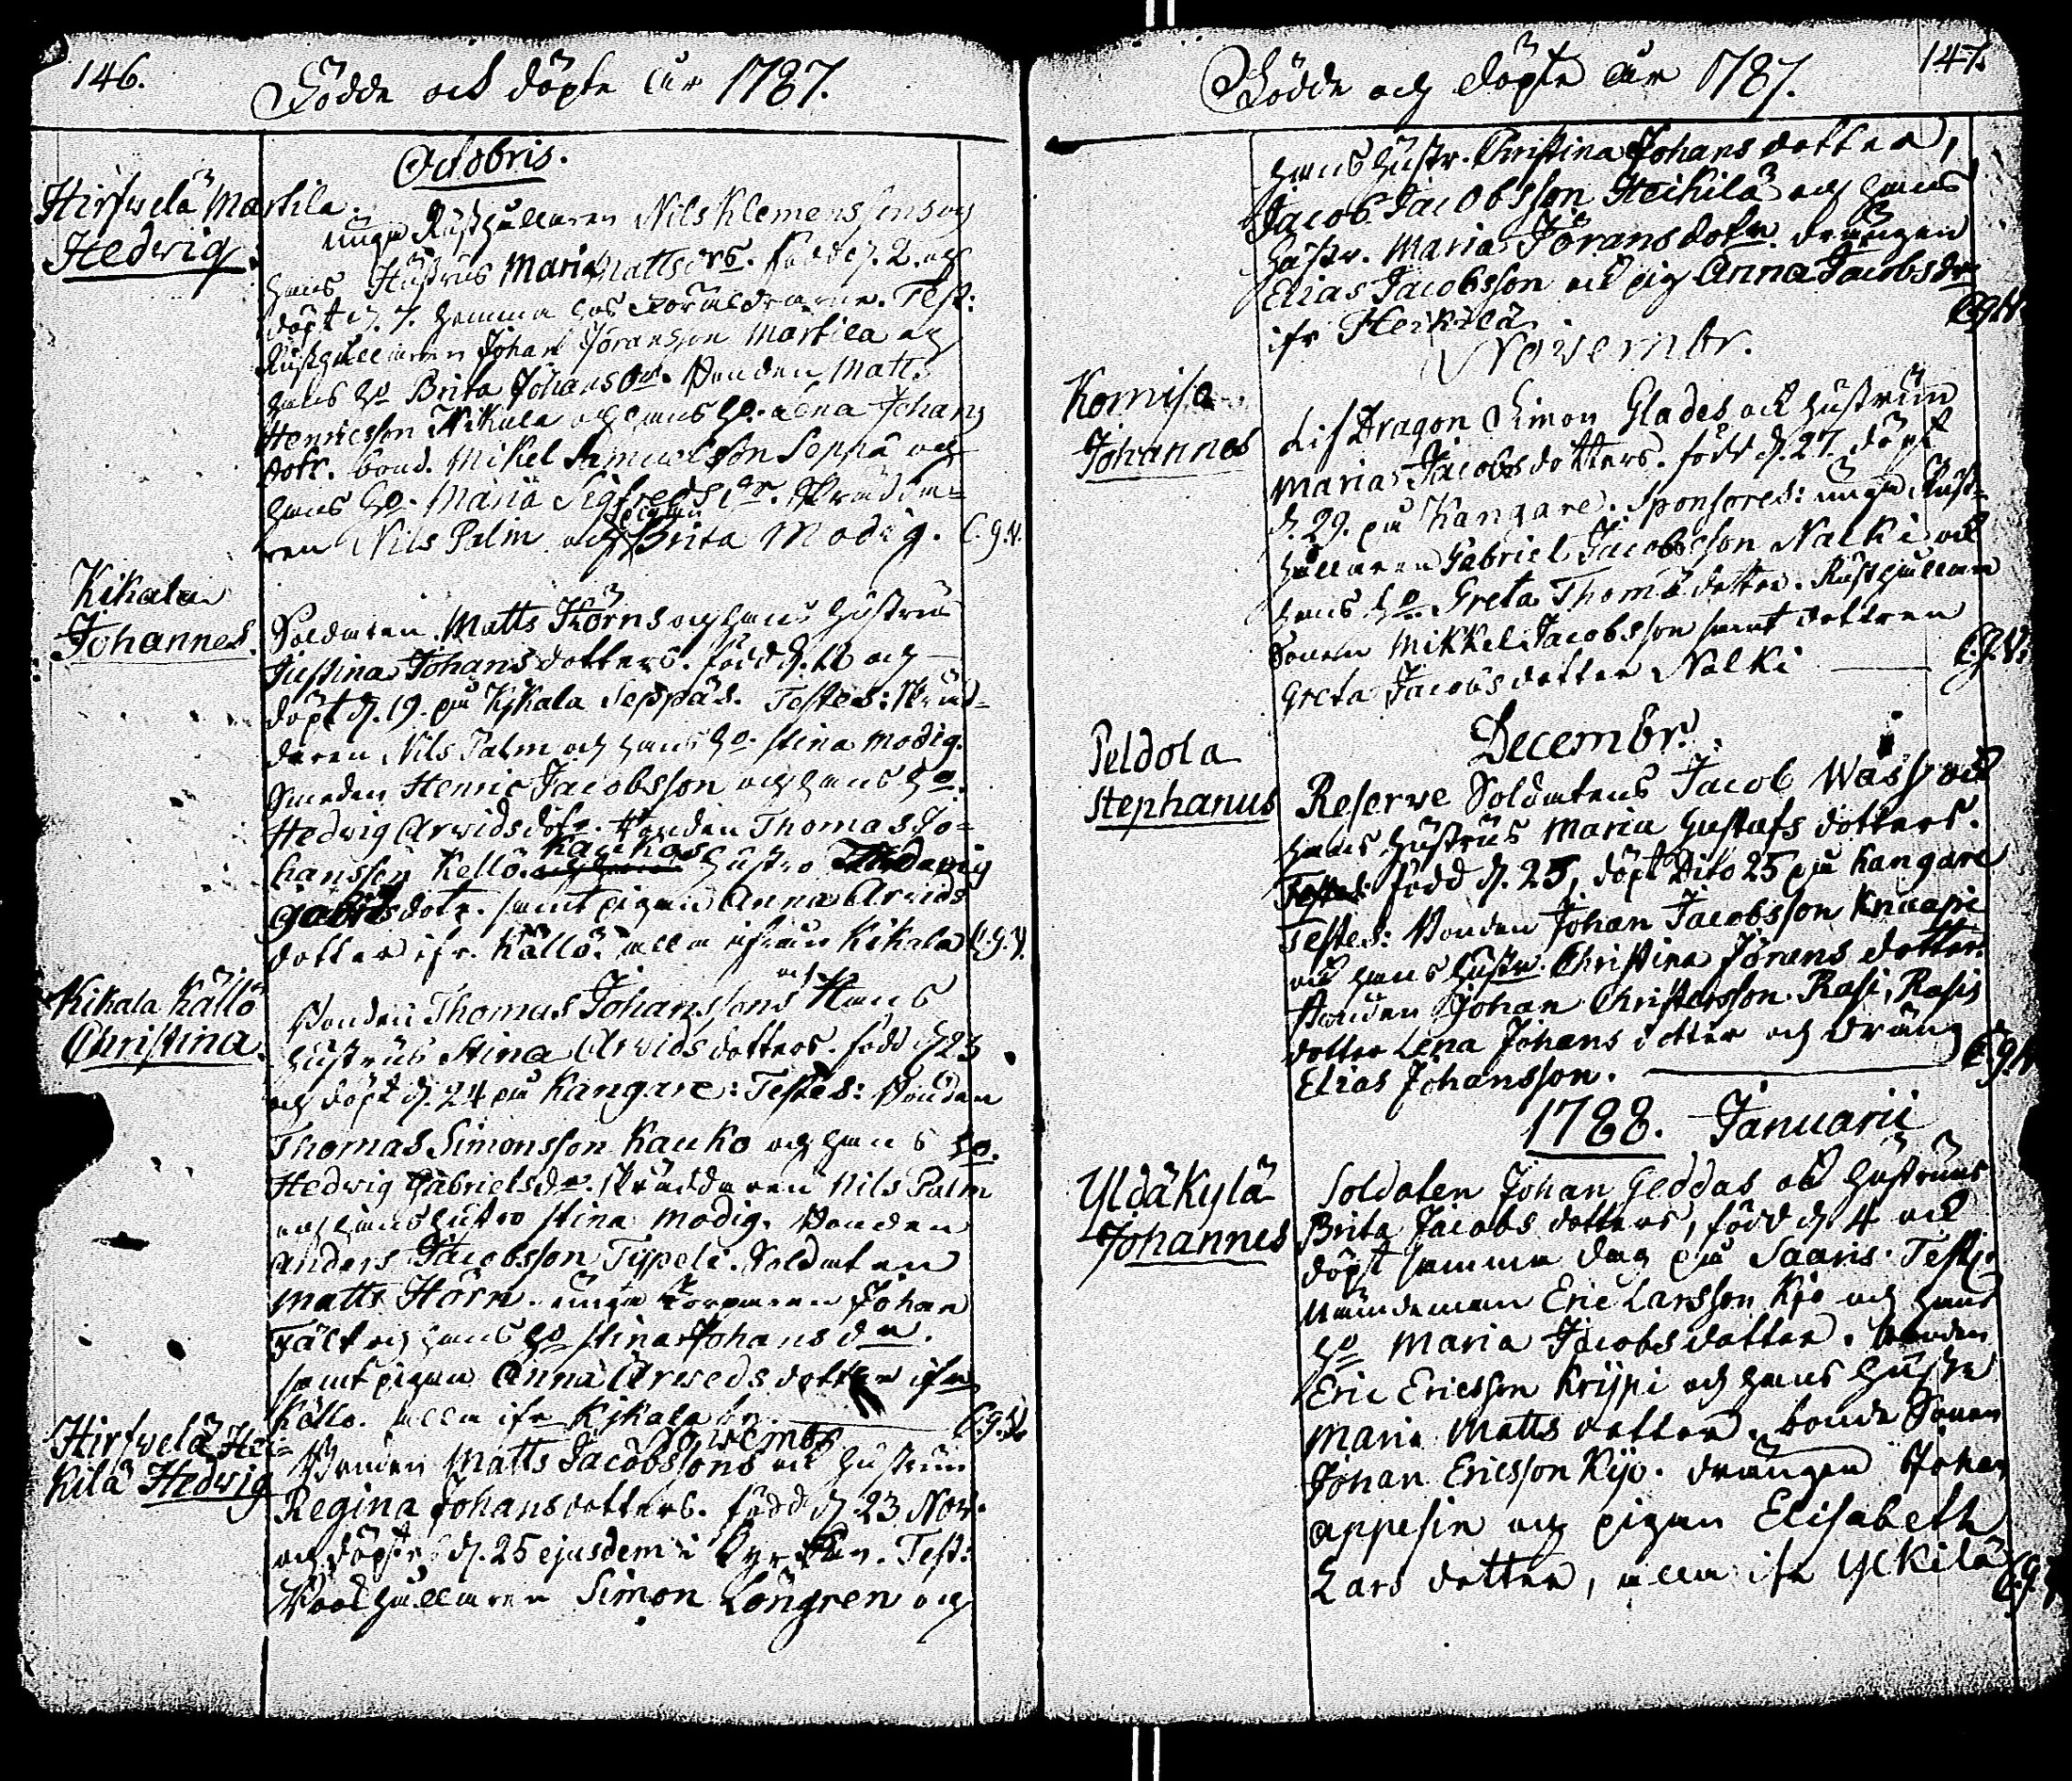 146.
Födde och döpte år 1787.
Octobris.
Hirfwelä Martila.
Hedwig.
unga Rusthållaren Nils Klemens sons och
hans Hustrus Maria Matts drs. född d. 2. och
döpt d. 7. hemma hos Föräldrarne. Test:
Rusthållaren Johan Jöransson Martila och
hans ho Brita Johans dr. Bonden Matts
Henricsson Kikala och hans ho. Lena Johans
dotr. bond. Mikel Samuelsson Seppä och
hans ho. Maria Sigfreds dr. Skrädda=
ren Nils Palm och pigan Brita Modig. C.g.V.
Kikala
Johannes.
Soldaten Matts Hörns och hans hustrus
Justina Johans dotters. född d. 18 och
döpt d. 19. på Kikala Seppäs. Testes: Skräd=
daren Nils Palm och hans ho. Stina Modig.
Smeden Henric Jacobsson och hans ho.
Hedwig Arwids dotr. Bonden Thomas Jo=
hansson Kellö. Kaukos hustro Hedwig
Gabriels dotr. samt pigan Anna Arwids
dotter ifr. Källö. alla ifrån Kikala C.g.V.
Kikala Källö
Christina.
Bonden Thomas Johanssons och Hans
hustrus Stina Arwids dotters. född d. 23
och döpt d. 24 på Kangare: Testes: Bonden
Thomas Simonsson Kauko och hans ho.
Hedwig Gabriels dr. Skräddaren Nils Palm
och hans hustro Stina Modig. Bonden
Anders Jacobsson Typeli. Soldaten
Matts Hörn. unga Torparen Johan
Fält och hans ho Stina Johans dr.
samt pigan Anna Arweds dotter ifr
Källö. alla ifr Kikala by. C.g.V.
Novembr
Hirfwelä Hei=
kilä Hedwig
Bonden Matts Jacobssons och hustrun
Regina Johans dotters. född d. 23 Nov.
och döpte d. 25 ejusdem i Kyrkan. Test:
Rusthållaren Simon Löngren och
147.
Födde och döpte år 1787.
hans hustr. Christina Johans dotter,
Jacob Jacobsson Heikilä och hans
hustr. Maria Jörans dotr. drängen
Elias Jacobsson och pig Anna Jacobs dr
ifr Heikilä C.g.V.
Novembr.
Komisa
Johannes
Lif Dragon Simon Glades och hustrun
Maria Jacobs dotters. född d. 27. döpt
d. 29. på Kangare. Sponsores: unga Rust=
hållaren Gabriel Jacobsson Nalki och
hans ho. Greta Thomä dotter. Rusthållare
Sonen Mikkel Jacobsson samt dottren
Greta Jacobs dotter Nalki C.g.V.
Decembr.
Peldola
Stephanus
Reserve Soldatens Jacob Wass och
hans hustrus Maria Gustafs dotters.
född d. 25, döpt dito 25 på Kangare
Testes: Bonden Johan Jacobsson Knaapi
och hans hustr. Christina Jörans dotter.
Bonden Johan Christersson Rasi, Rasis
dotter Lena Johans dotter och dräng
Elias Johansson. C.g.V.
1788. Januarii
Yldäkylä
Johannes
Soldaten Johan Geddas och hustrus
Brita Jacobs dotters, född d. 4 och
döpt samma dag på Saaris. Test:
Nämdeman Eric Larsson Kijo och hans
ho Maria Jacobs dotter. Bonden
Eric Ericsson Krijpi och hans hustr
Maria Matts dotter. bonde Sonen
Johan Ericsson Kijo. drängen Johan
appesin och pigan Elisabeth
Lars dotter, alla ifr Ylkilä C.g.V.